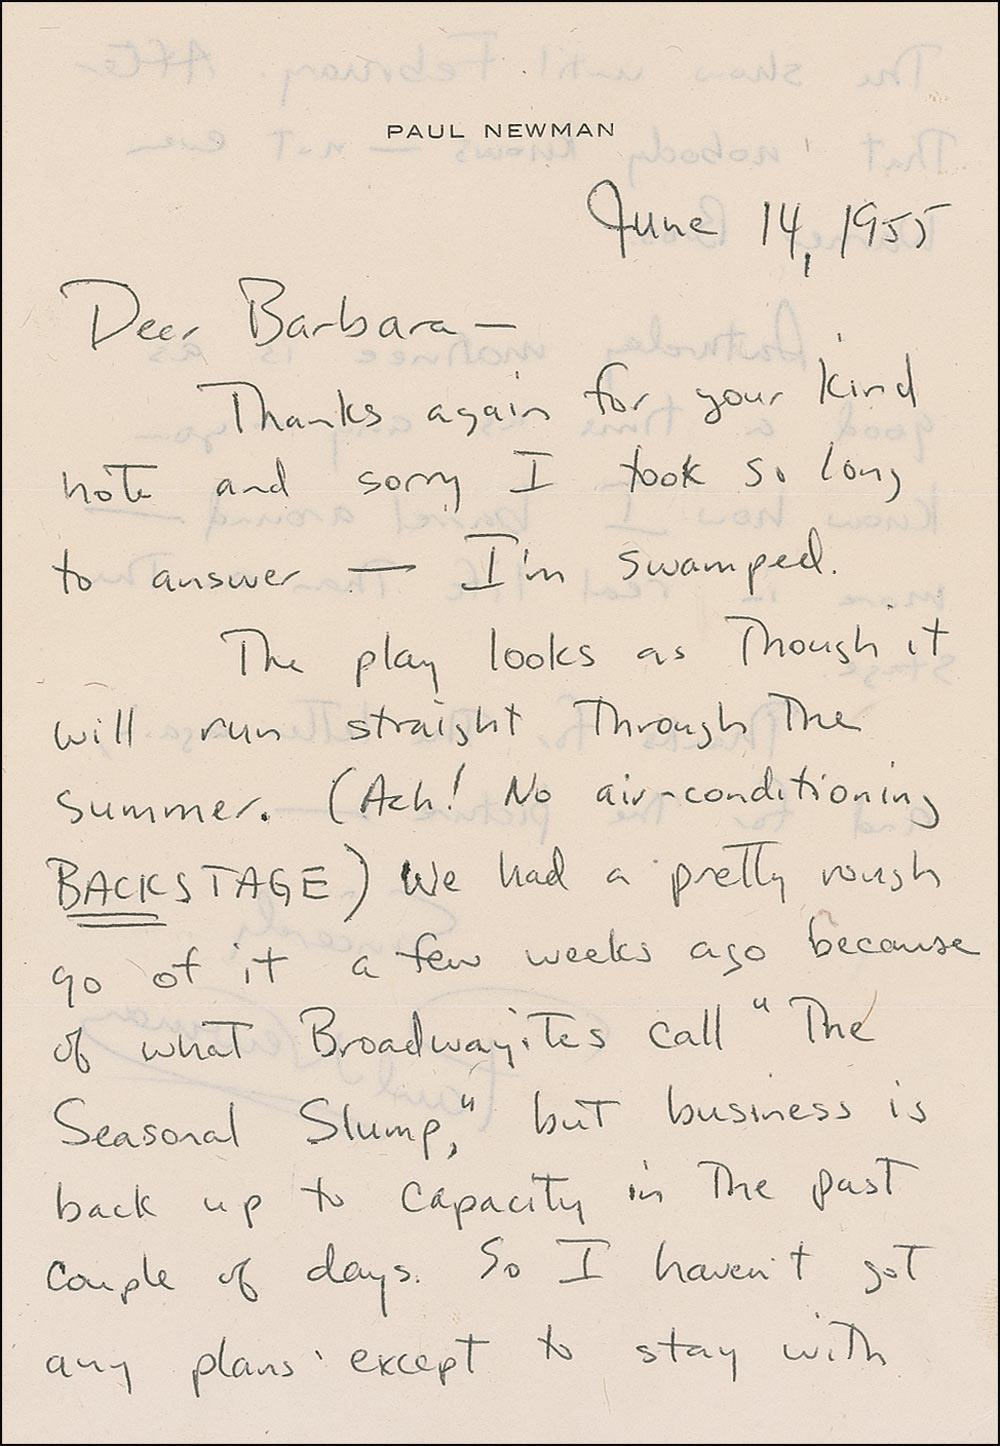 PAUL NEWMAN
June 14, 1955
Dear Barbara —
Thanks again for your kind
note and sorry I took so long
to answer — I'm swamped.
The play looks as though it
will run straight through the
summer. (Ach! No air-conditioning
BACKSTAGE) We had a pretty rough
go of it a few weeks ago because
of what Broadwayites call "The
Seasonal Slump," but business is
back up to capacity in the past
couple of days. So I haven't got
any plans except to stay with